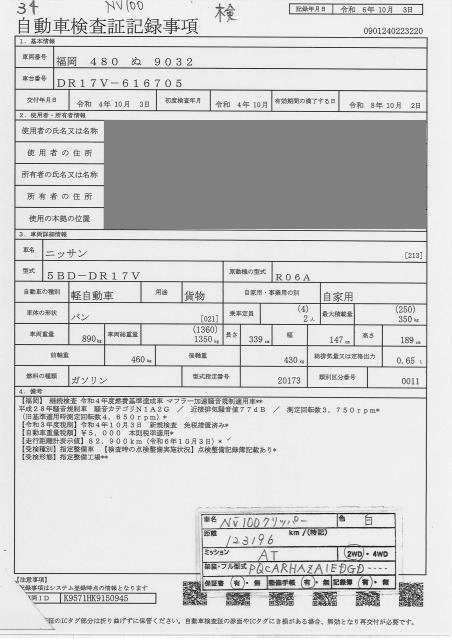 34 NV100 検
記録年月日 令和 6年10月 3日
自動車検査証記録事項
0901240223220
1.基本情報
車両番号 福岡 480 ぬ 9032
車台番号 DR17V-616705
交付年月日 令和 4年10月 3日 初度検査年月 令和 4年10月 有効期間の満了する日 令和 8年10月 2日
2.使用者・所有者情報
使用者の氏名又は名称
使用者の住所
所有者の氏名又は名称
所有者の住所
使用の本拠の位置
3.車両詳細情報
車名 ニッサン [213]
型式 5BD-DR17V 原動機の型式 R06A
自動車の種別 軽自動車 用途 貨物 自家用・事業用の別 自家用
車体の形状 バン [021] 乗車定員 (4) 2人 最大積載量 (250) 350kg
車両重量 890kg 車両総重量 (1360) 1350kg 長さ 339cm 幅 147cm 高さ 189cm
前軸重 460kg 後軸重 430kg 総排気量又は定格出力 0.65L
燃料の種類 ガソリン 型式指定番号 20173 類別区分番号 0011
4.備考
【福岡】 継続検査 令和4年度燃費基準達成車 マフラー加速騒音規制適用車**
平成28年騒音規制車 騒音カテゴリN1A2G / 近接排気騒音値77dB / 測定回転数3,750rpm*
(旧基準適用時測定回転数4,650rpm)*
【令和3年度税制】令和4年10月3日 新規検査 免税措置済み*
【自動車重量税額】¥5,000 本則税率適用*
【走行距離計表示値】82,900km(令和6年10月3日)*
【受検種別】指定整備車 【検査時の点検整備実施状況】点検整備記録簿記載あり*
【受検形態】指定整備工場**
車名 NV100クリッパー 色 白
距離 123196 km/(特記)
ミッション AT 2WD・4WD
架装・フル型式 PQCARHAZA1EDGD----
保証書 有・無 整備手帳 有・無 記録簿 有・無
【注意事項】
記録事項はシステム登録時点の情報となります
車両ID K9571HK9150945
証のICタグ部分は折り曲げずに保管ください。自動車検査証の券面やICタグにき損がある場合、無効となり再交付が必要です。